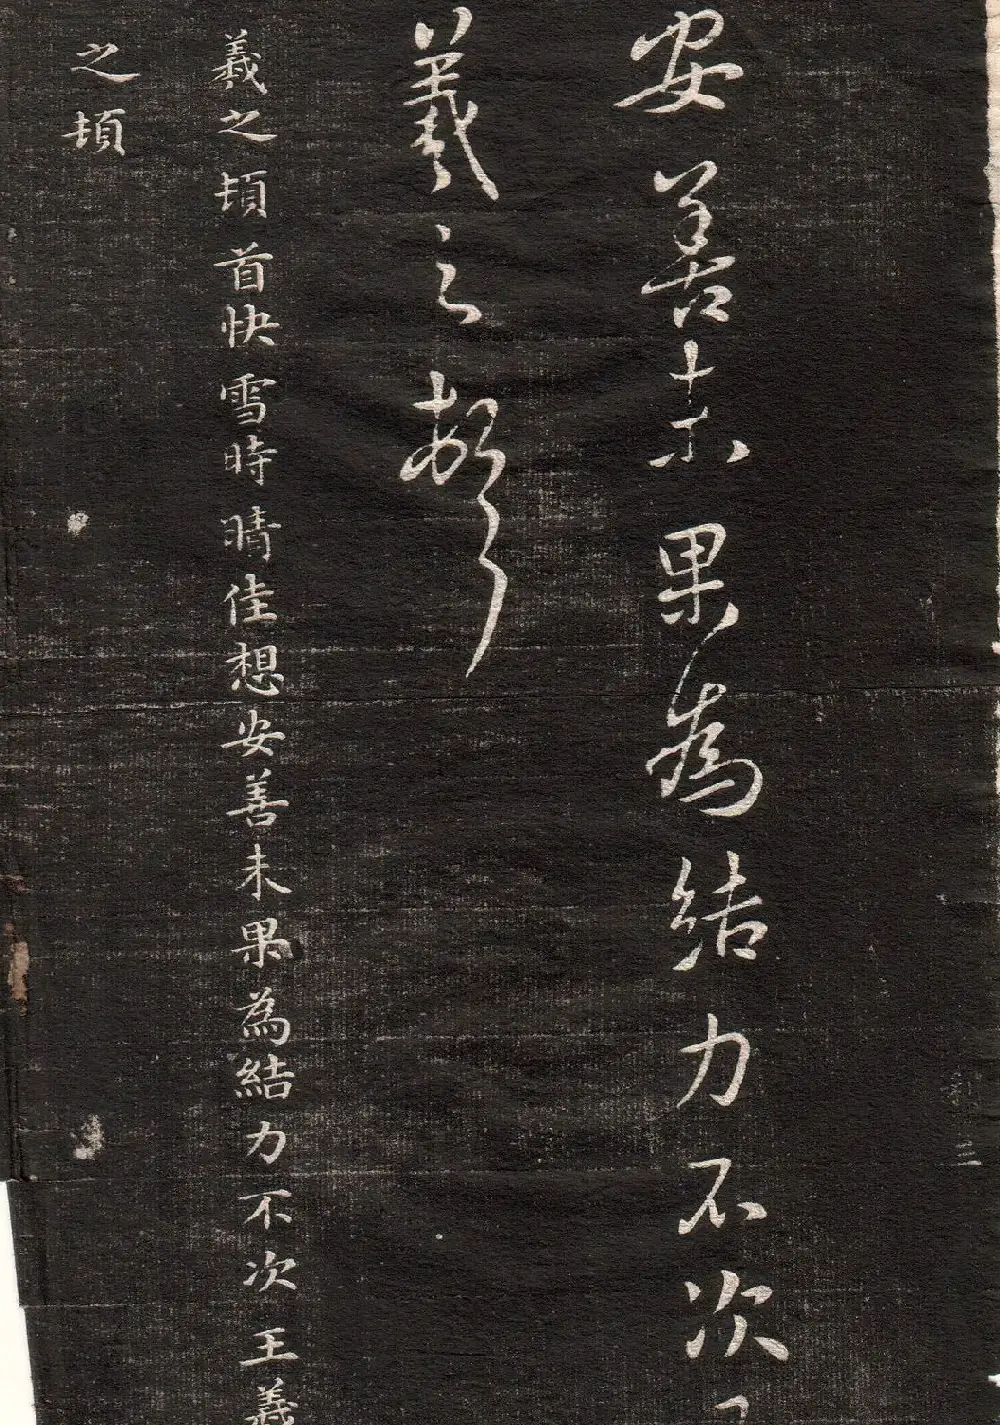 安善未果為結力不次
羲之頓
羲之頓首快雪時晴佳想安善未果為結力不次王羲
之頓
三